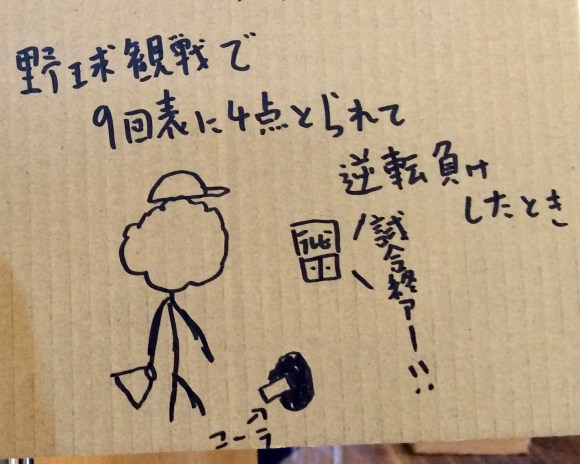 野球観戦で
9回表に4点とられて
逆転負け
したとき
テレビ
試合終アー!!
コーラ